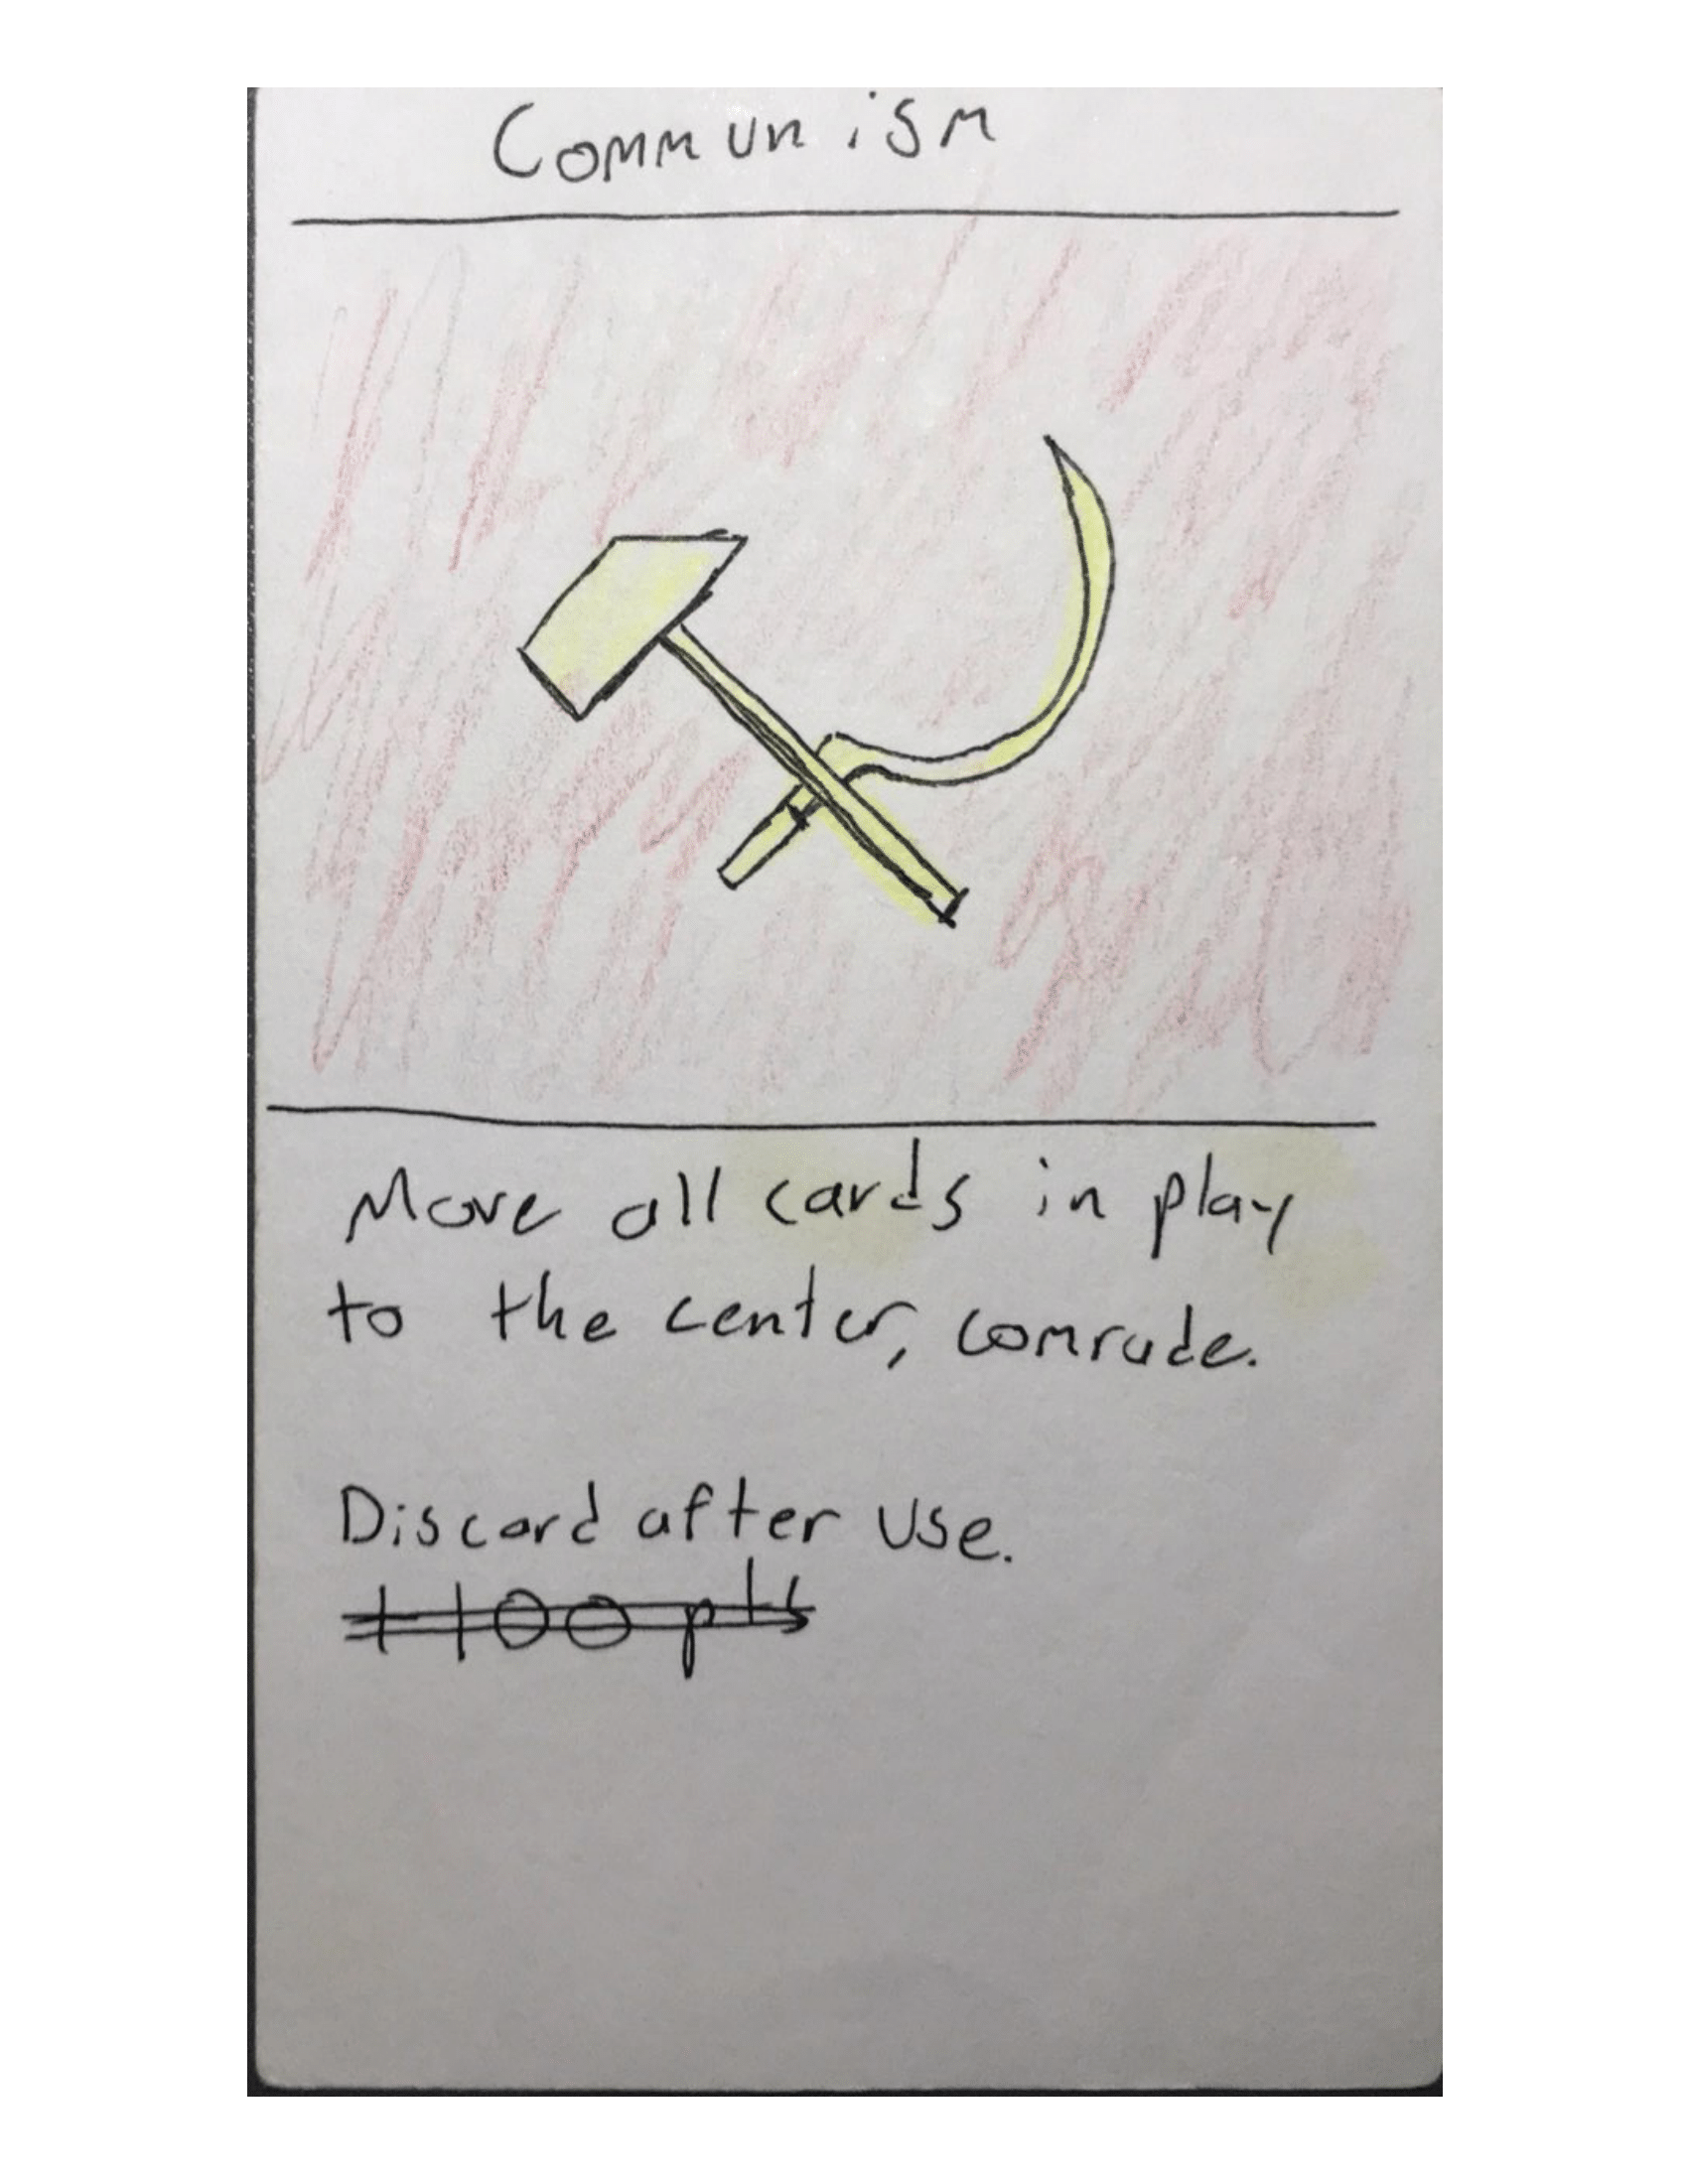 Communism
Move all cards in play
to the center, comrade.
Discard after use.
+100 pts